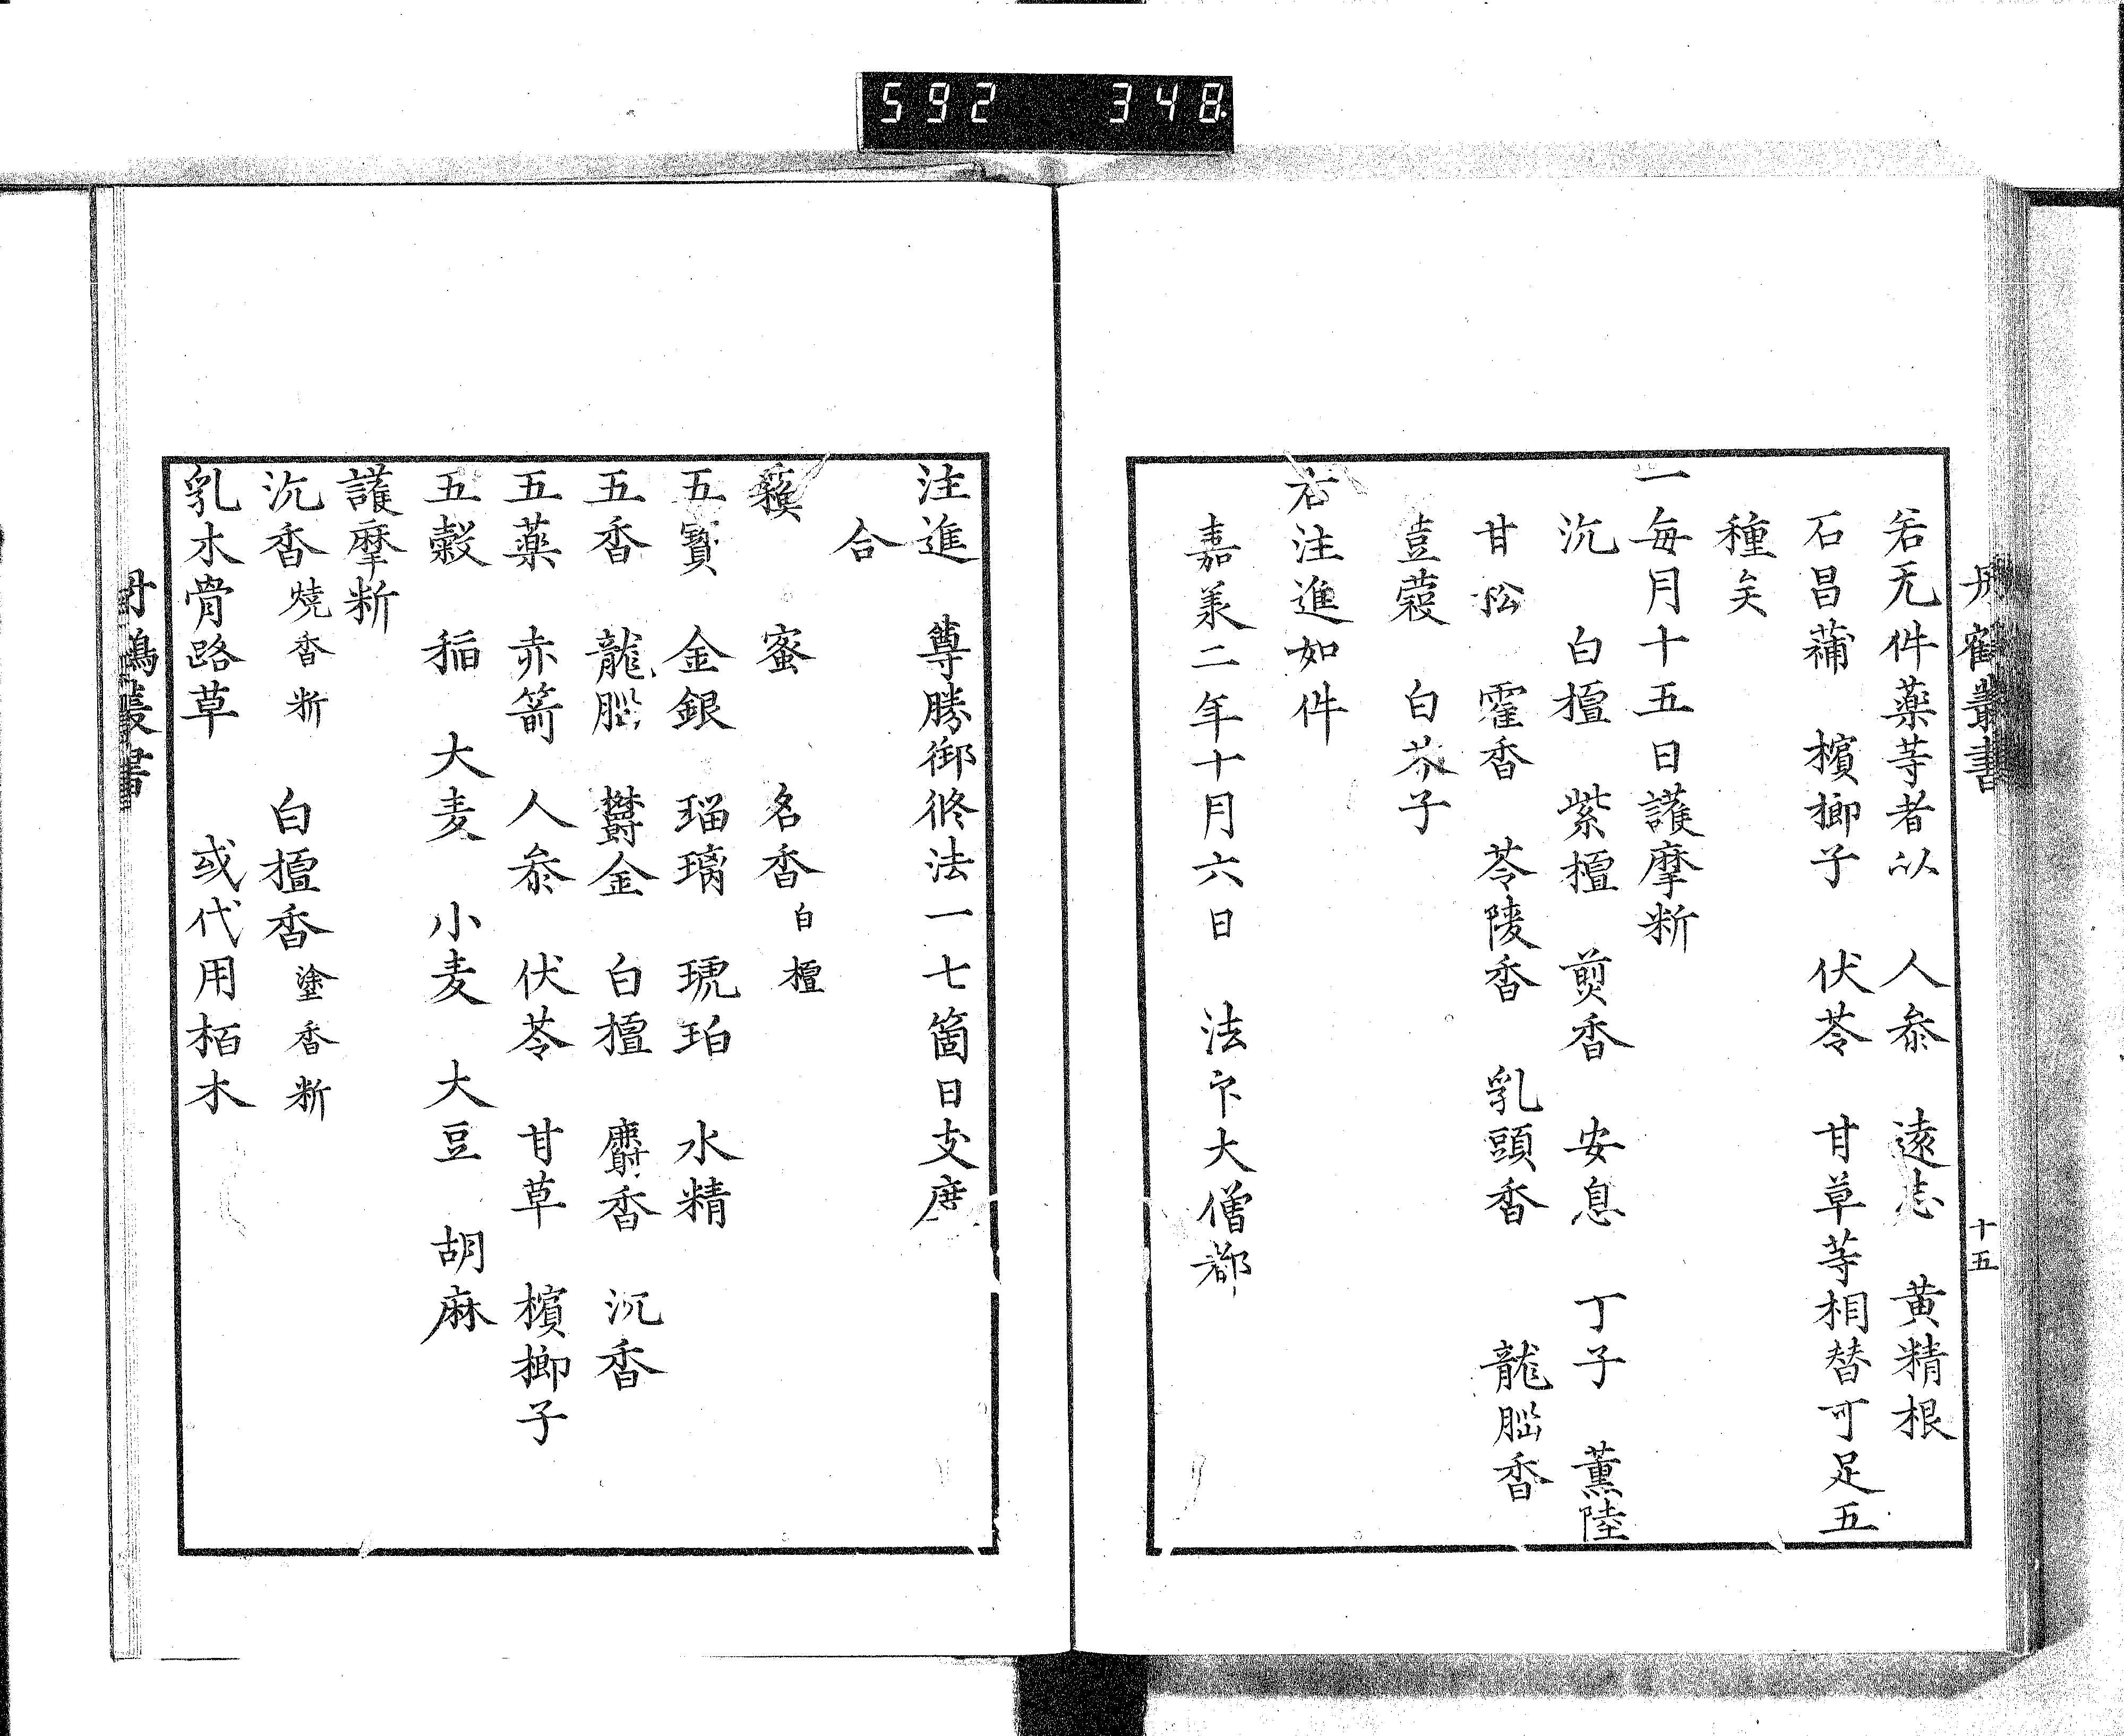 592 348
丹鶴叢書
十五
若无件薬等者以 人参 遠志 黄精根
石昌蒲 檳榔子 伏苓 甘草等相替可足五
種矣
一毎月十五日護摩断
沉 白檀 紫檀 煎香 安息 丁子 薫陸
甘松 霍香 苓陵香 乳頭香 龍脳香
荳蔲 白芥子
右注進如件
嘉承二年十月六日 法印大僧都
注進 尊勝御修法一七箇日支度
合
蘇 蜜 名香白檀
五寳 金銀 瑠璃 琥珀 水精
五香 龍脳 欝金 白檀 麝香 沉香
五薬 赤箭 人参 伏苓 甘草 檳榔子
五穀 稲 大麦 小麦 大豆 胡麻
護摩断
沉香焼香断 白檀香塗香断
乳木骨路草 或代用栢木
丹鶴叢書